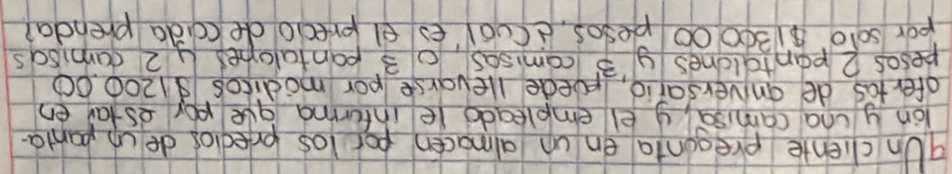 9 Un cliente pregunta en un almacén por los precios de un panta-
lón y una camisa, y el empleado le informa que por estar en
ofertas de aniversario, puede llevarse por módicos $1200.00
pesos 2 pantalones y 3 camisas, o 3 pantalones y 2 camisas
por solo $1300.00 pesos. ¿Cuál es el precio de cada prenda?